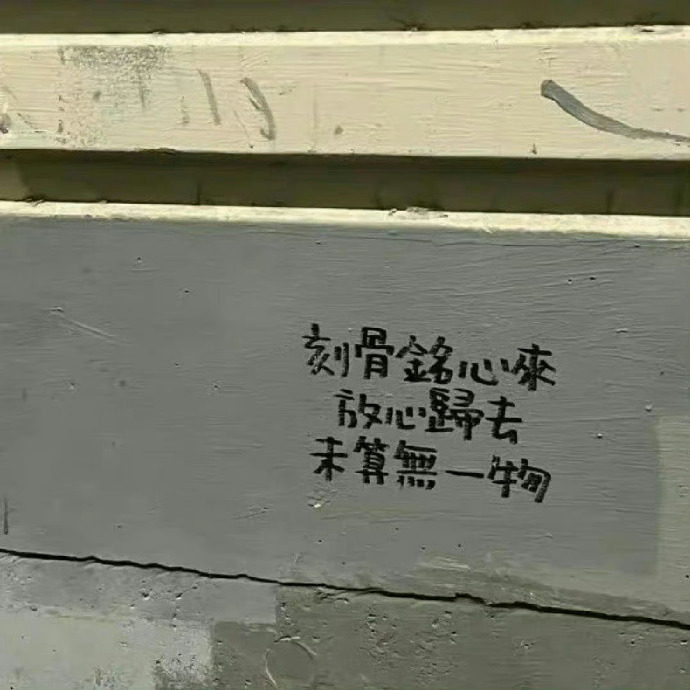 刻骨銘心來
放心歸去
未算無一物